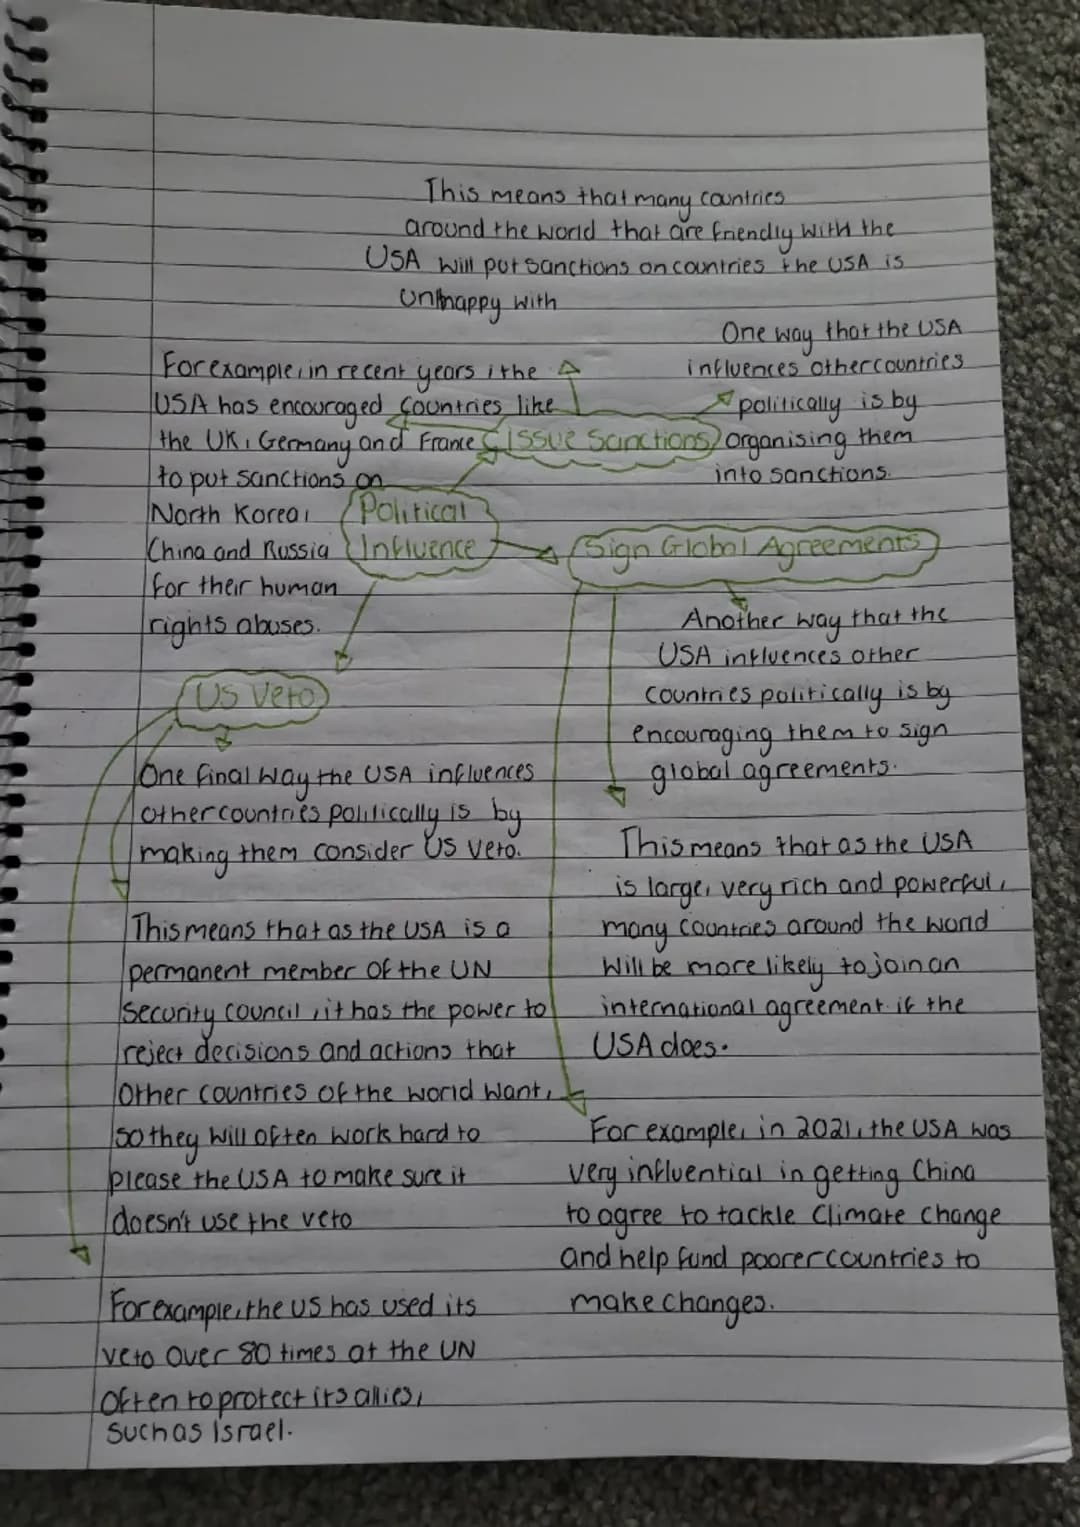 This means that many countries
around the world that are friendly with the
USA will put sanctions on countries the USA is
unhappy with
One way that the USA
influences other countries
politically is by
organising them
into sanctions.
For example, in recent years, the
USA has encouraged countries like
the UK, Germany and France
to put sanctions on
North Korea,
China and Russia
for their human
rights abuses.
Issue Sanctions
Political
Influence
Sign Global Agreements
Another way that the
USA influences other
countries politically is by
encouraging them to sign
global agreements.
This means that as the USA
is large, very rich and powerful,
many countries around the world
will be more likely to join an
international agreement if the
USA does.
For example, in 2021, the USA was
very influential in getting China
to agree to tackle climate change
and help fund poorer countries to
make changes.
US Veto
One final way the USA influences
other countries politically is by
making them consider US veto.
This means that as the USA is a
permanent member of the UN
security council, it has the power to
reject decisions and actions that
other countries of the world want,
so they will often work hard to
please the USA to make sure it
doesn't use the veto
For example, the US has used its
veto over 80 times at the UN
often to protect its allies,
such as Israel.